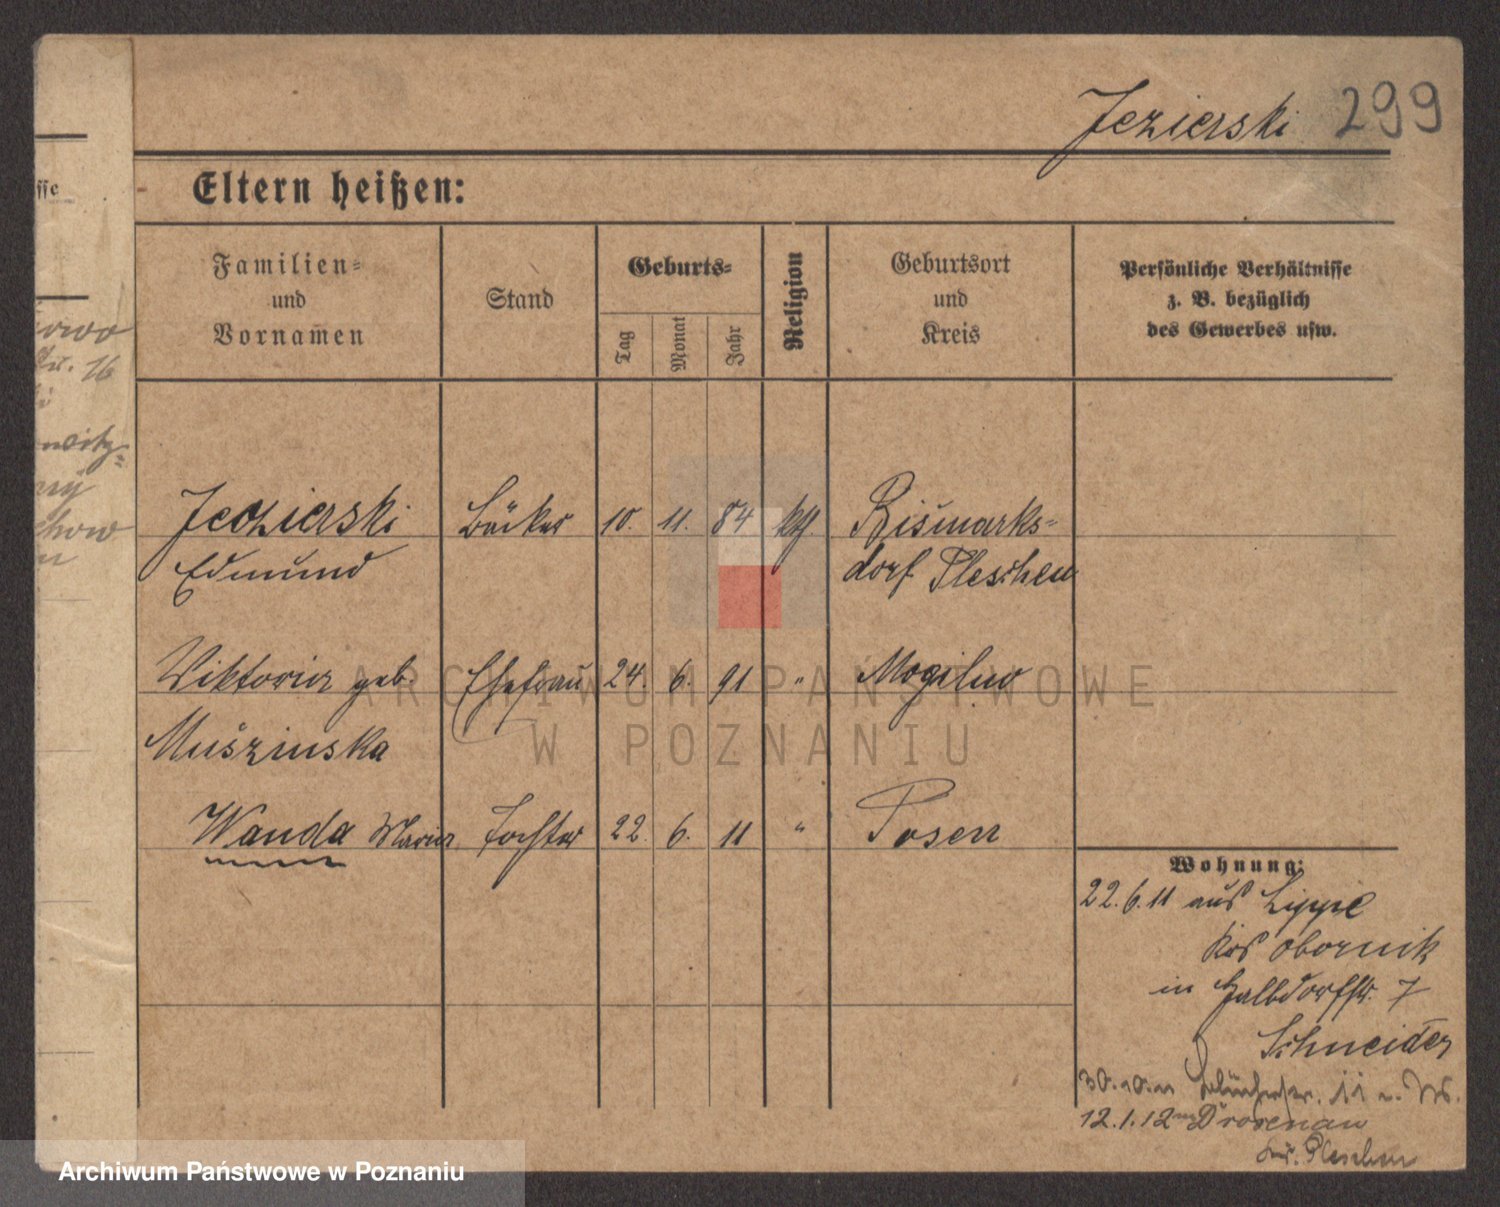 Jezierski 299
Eltern heißen:
Familien- und Vornamen
Stand
Geburts-
Tag
Monat
Jahr
Religion
Geburtsort und Kreis
Persönliche Verhältnisse
z. B. bezüglich
des Gewerbes usw.
Jezierski Bäcker 10. 11. 84 kth. Bismarks-
Edmund dorf Pleschen
Viktoria geb. Ehefrau 24. 6. 91 " Mogilno
Muszinska
Wanda Maria Tochter 22. 6. 11 " Posen
Wohnung:
22.6.11 aus Lippe
Krs Obornik
in Halbdorfstr. 7
Schneider
30.10.11
12.1.12 Droszenau
Krs. Pleschen
sse
owo
Str. 16
ARCHIWUM PAŃSTWOWE
W POZNANIU
Archiwum Państwowe w Poznaniu